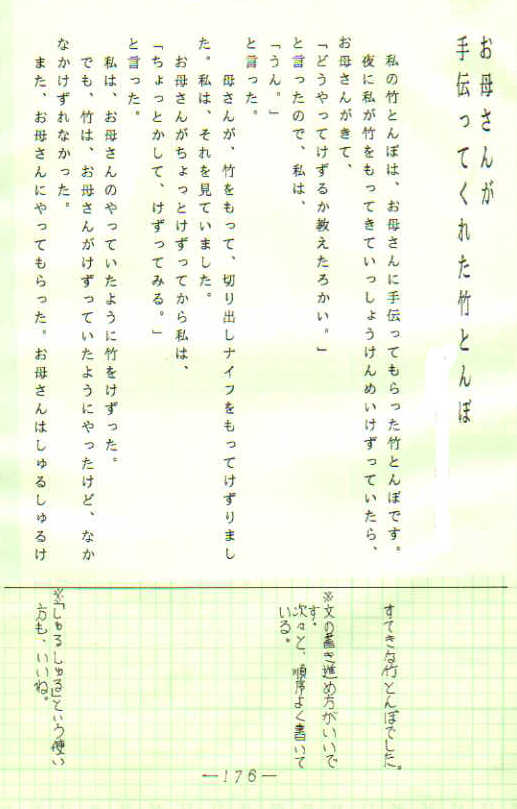 お母さんが
手伝ってくれた竹とんぼ
私の竹とんぼは、お母さんに手伝ってもらった竹とんぼです。
夜に私が竹をもってきていっしょうけんめいけずっていたら、
お母さんがきて、
「どうやってけずるか教えたろかい。」
と言ったので、私は、
「うん。」
と言った。
母さんが、竹をもって、切り出しナイフをもってけずりまし
た。私は、それを見ていました。
お母さんがちょっとけずってから私は、
「ちょっとかして、けずってみる。」
と言った。
私は、お母さんのやっていたように竹をけずった。
でも、竹は、お母さんがけずっていたようにやったけど、なか
なかけずれなかった。
また、お母さんにやってもらった。お母さんはしゅるしゅるけ
すてきな竹とんぼでした。
※文の書き進め方がいいで
す。
次々と、順序よく書いて
いる。
※「しゅるしゅる」という使い
方も、いいね。
—176—